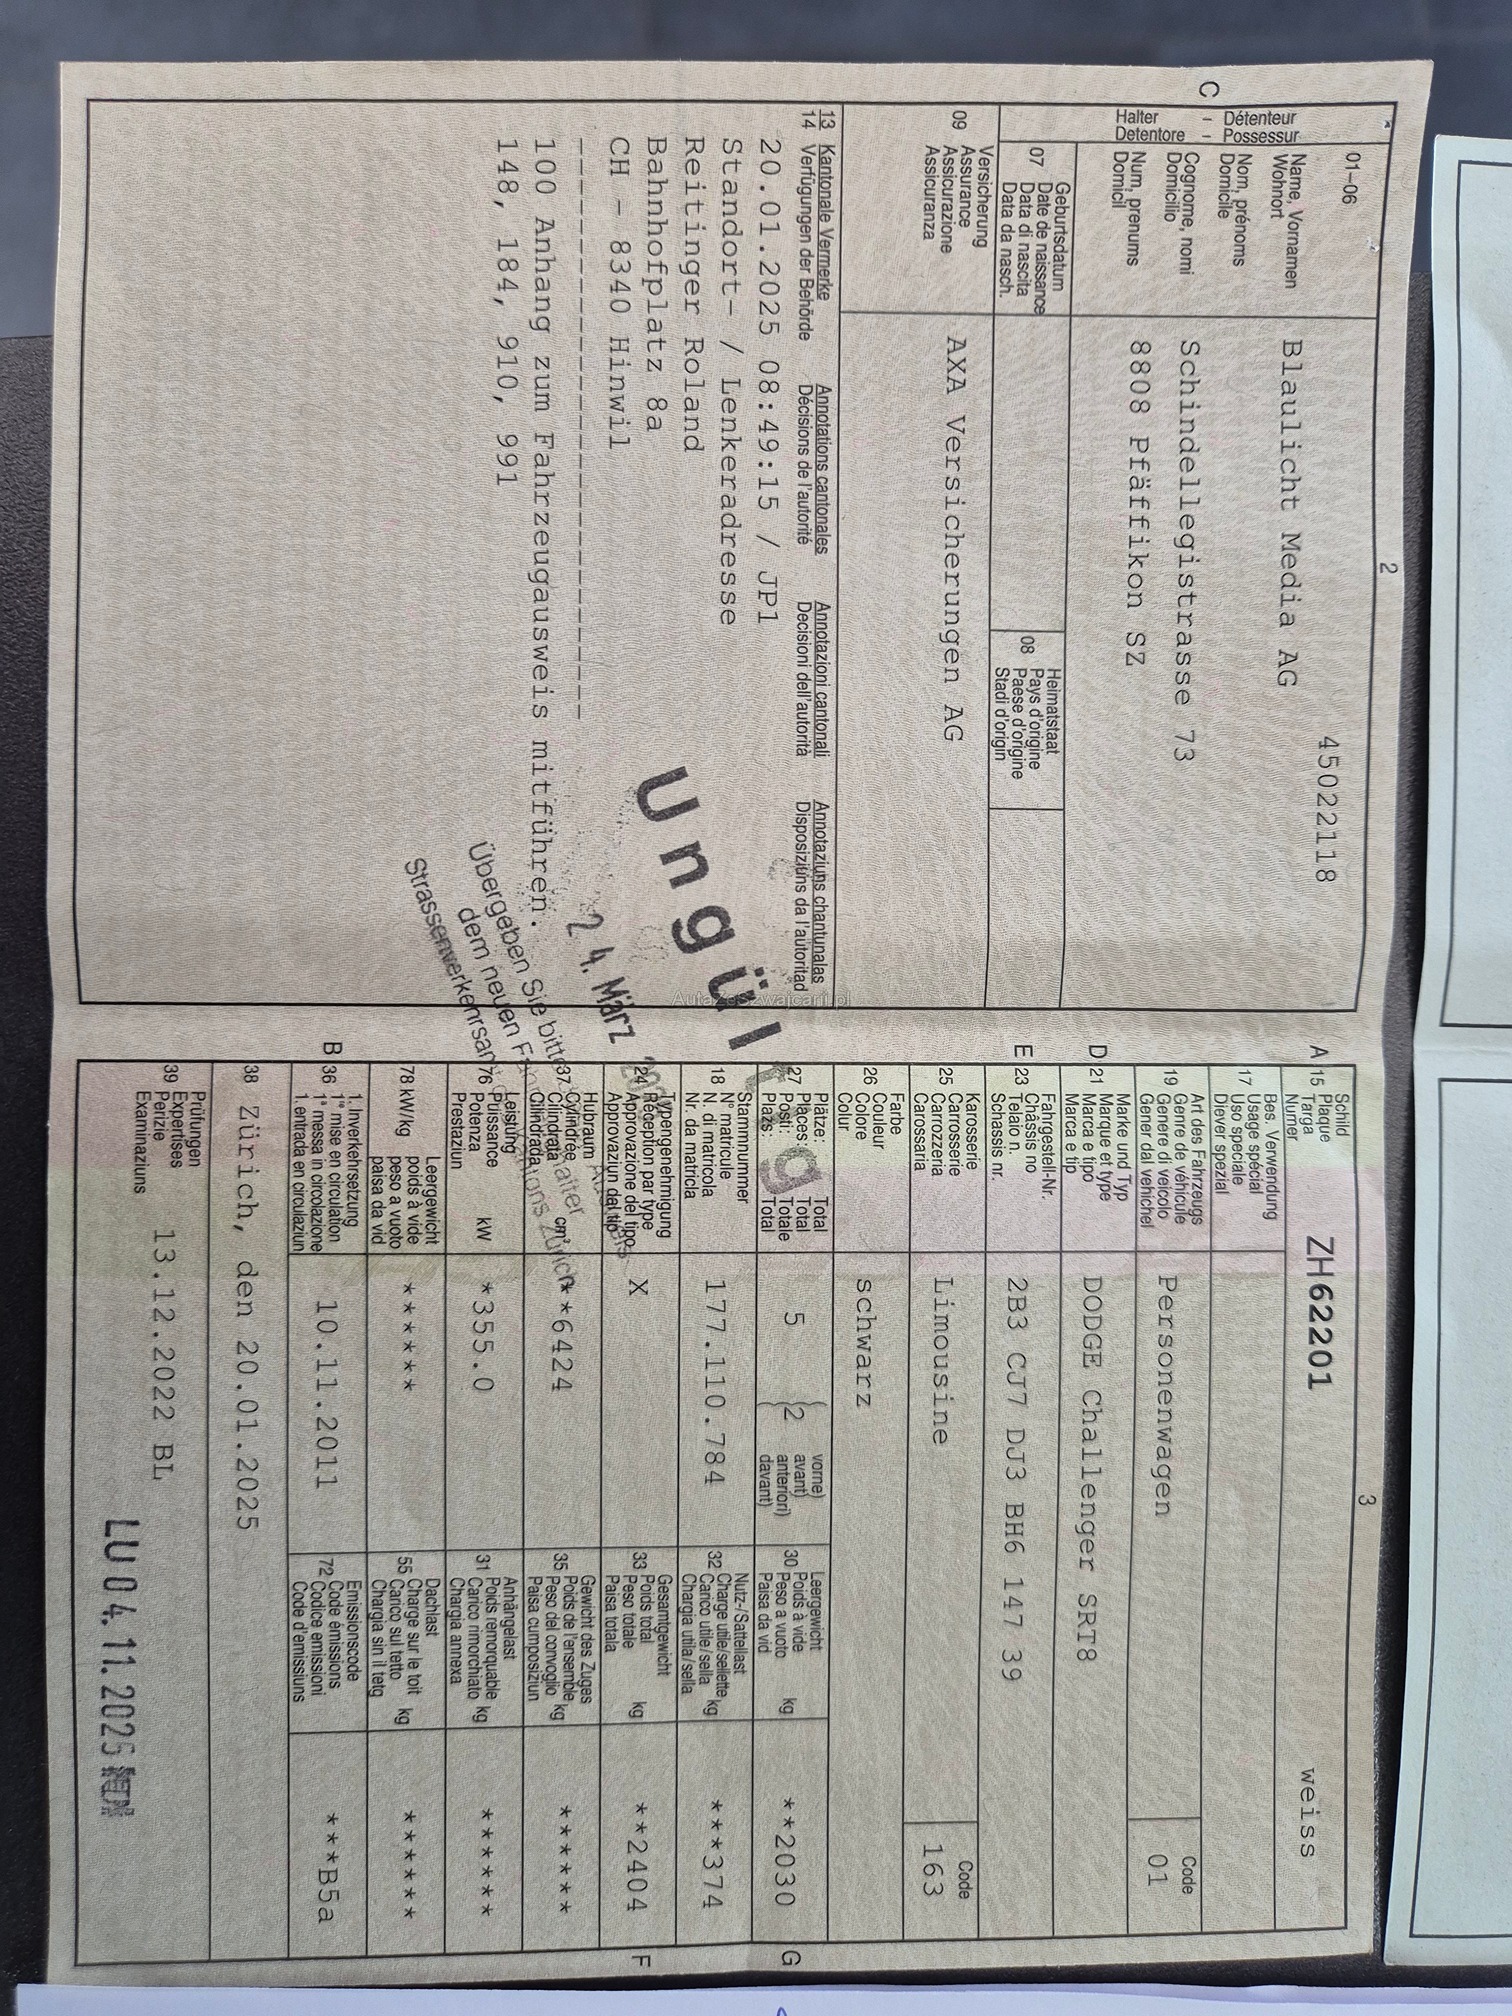 2
45022118
C
01–06
Détenteur - Possessur
Halter - Detentore
Name, Vornamen
Wohnort
Nom, prénoms
Domicile
Cognome, nomi
Domicilio
Num, prenums
Domicil
Blaulicht Media AG
Schindellegistrasse 73
8808 Pfäffikon SZ
07
Geburtsdatum
Date de naissance
Data di nascita
Data da nasch.
08
Heimatstaat
Pays d'origine
Paese d'origine
Stadi d'origin
09
Versicherung
Assurance
Assicurazione
Assicuranza
AXA Versicherungen AG
13 Kantonale Vermerke Annotations cantonales Annotazioni cantonali Annotaziuns chantunalas
14 Verfügungen der Behörde Décisions de l'autorité Decisioni dell'autorità Disposiziuns da l'autoritad
20.01.2025 08:49:15 / JP1
Standort- / Lenkeradresse
Reitinger Roland
Bahnhofplatz 8a
CH - 8340 Hinwil
100 Anhang zum Fahrzeugausweis mitführen.
148, 184, 910, 991
Ungültig
24. März
Übergeben Sie bitte
dem neuen
Strassenverkehrsamt
3
A 15
Schild
Plaque
Targa
Numer
ZH62201
weiss
17
Bes. Verwendung
Usage spécial
Uso speciale
Diever spezial
19
Art des Fahrzeugs
Genre de véhicule
Genere di veicolo
Gener dal vehichel
Personenwagen
Code
01
D 21
Marke und Typ
Marque et type
Marca e tipo
Marca e tip
DODGE Challenger SRT8
E 23
Fahrgestell-Nr.
Châssis no
Telaio n.
Schassis nr.
2B3 CJ7 DJ3 BH6 147 39
25
Karosserie
Carrosserie
Carrozzeria
Carossaria
Limousine
Code
163
26
Farbe
Couleur
Colore
Colur
schwarz
27
Plätze: Total
Places: Total
Posti: Totale
Plazs: Total
5
(2
vorne)
avant)
anteriori)
davant)
30
Leergewicht
Poids à vide
Peso a vuoto
Paisa da vid
kg
**2030
G
18
Stammnummer
N° matricule
N. di matricola
Nr. da matricla
177.110.784
32
Nutz-/Sattellast
Charge utile/sellette
Carico utile/sella
Chargia utila/sella
kg
***374
24
Typengenehmigung
Réception par type
Approvazione del tipo
Approvaziun dal tip
X
33
Gesamtgewicht
Poids total
Peso totale
Paisa totala
kg
**2404
F
37
Hubraum
Cylindrée
Cilindrata
Cilindrada
cm³
**6424
35
Gewicht des Zuges
Poids de l'ensemble
Peso del convoglio
Paisa cumposiziun
kg
******
76
Leistung
Puissance
Potenza
Prestaziun
kW
*355.0
31
Anhängelast
Poids remorquable
Carico rimorchiato
Chargia annexa
kg
******
78 kW/kg
Leergewicht
poids à vide
peso a vuoto
paisa da vid
******
55
Dachlast
Charge sur le toit
Carico sul tetto
Chargia sin il tetg
kg
******
B 36
1. Inverkehrsetzung
1re mise en circulation
1a messa in circolazione
1. entrada en circulaziun
10.11.2011
72
Emissionscode
Code émissions
Codice emissioni
Code d'emissiuns
***B5a
38 Zürich, den 20.01.2025
39
Prüfungen
Expertises
Perizie
Examinaziuns
13.12.2022 BL
LU 04. 11. 2025